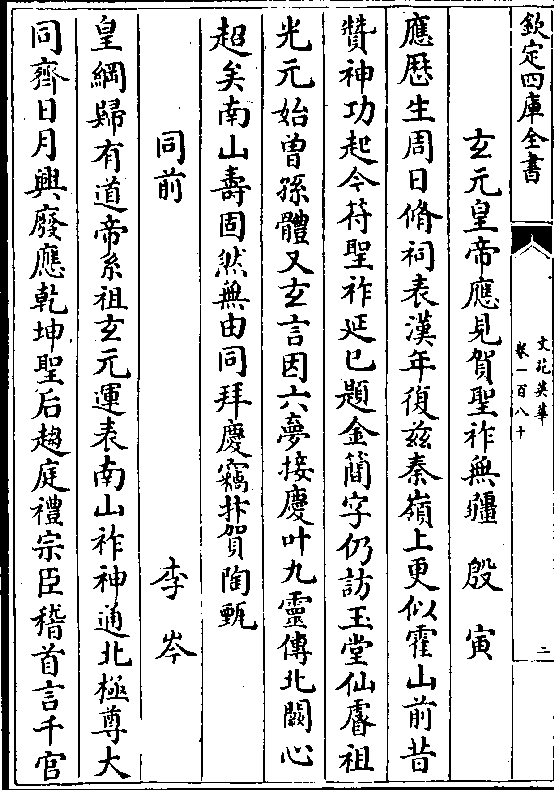 欽定四庫全書
文苑英華
卷一百八十
二
玄元皇帝應見賀聖祚無疆 殷寅
應厯生周日脩祠表漢年復兹秦嶺上更似霍山前昔
贊神功起今符聖祚延已題金簡字仍訪玉堂仙睿祖
光元始曽孫體又玄言因六夢接慶叶九靈傳北闕心
超矣南山壽固然無由同拜慶竊抃賀陶甄
同前 李岑
皇綱歸有道帝系祖玄元運表南山祚神通北極尊大
同齊日月興廢應乾坤聖后趨庭禮宗臣稽首言千官